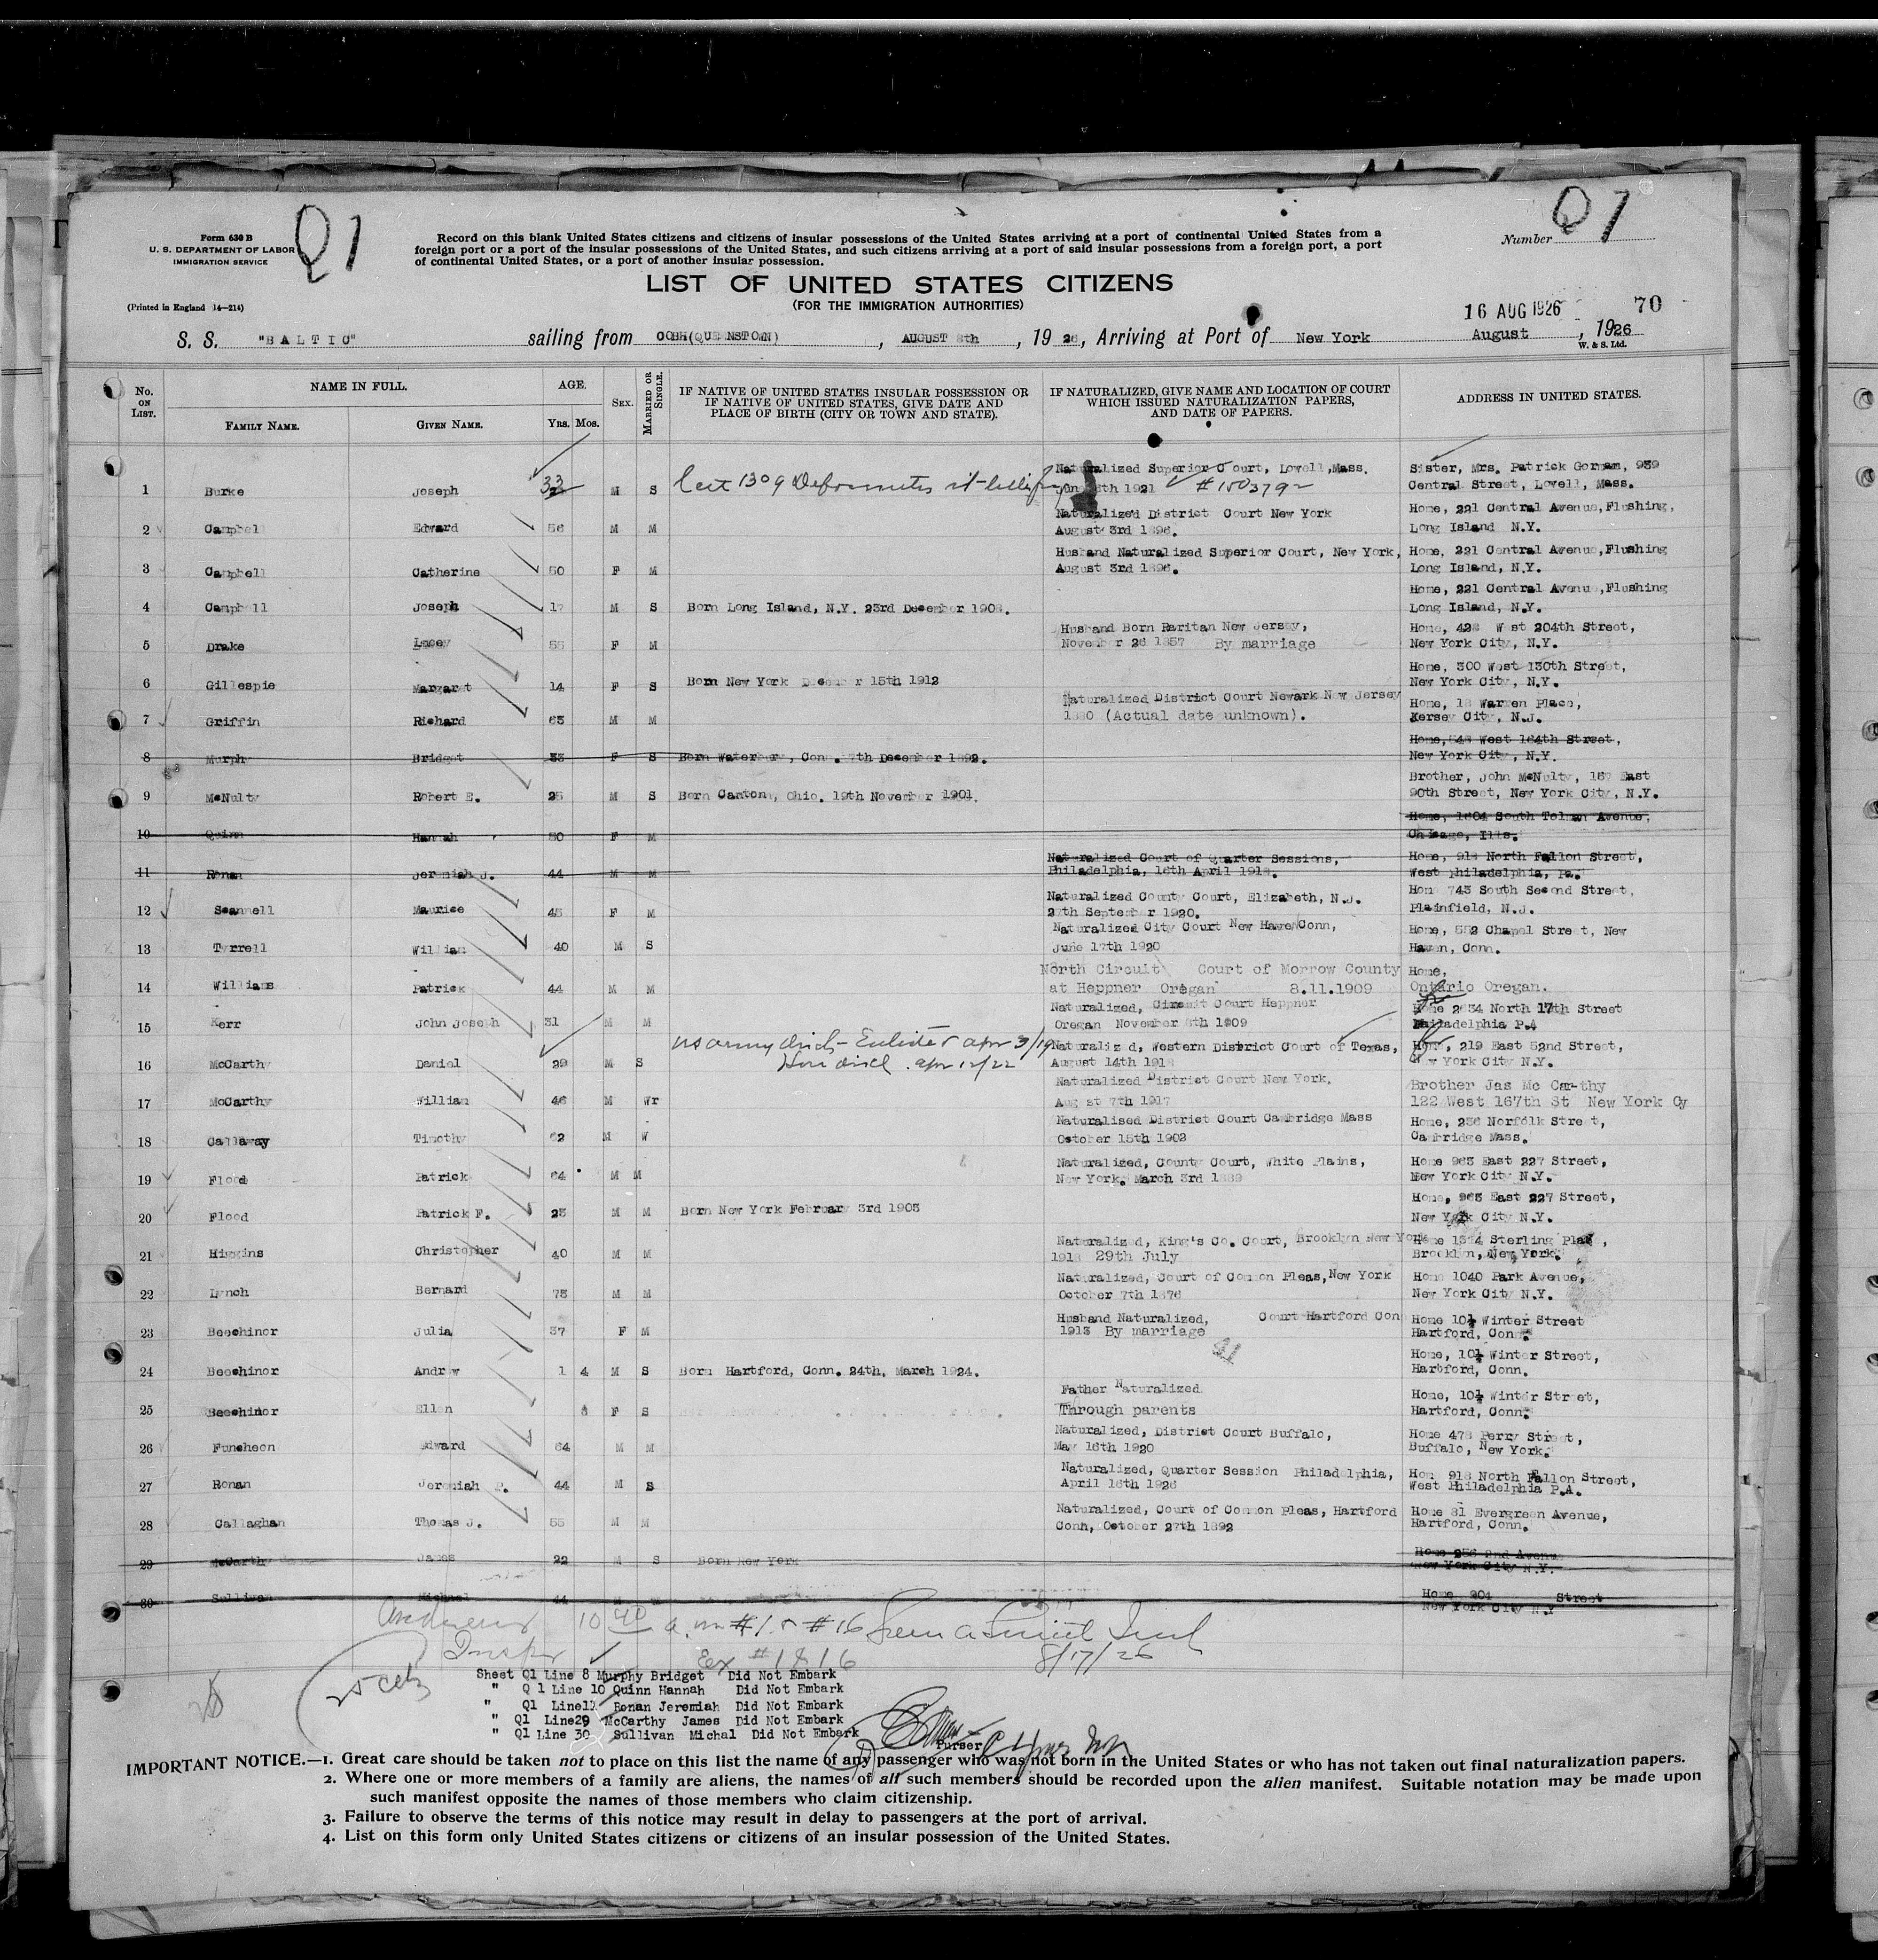 Q1
Q1
Form 630 B
U. S. DEPARTMENT OF LABOR
IMMIGRATION SERVICE
(Printed in England 14—214)
Record on this blank United States citizens and citizens of insular possessions of the United States arriving at a port of continental United States from a
foreign port or a port of the insular possessions of the United States, and such citizens arriving at a port of said insular possessions from a foreign port, a port
of continental United States, or a port of another insular possession.
Number
LIST OF UNITED STATES CITIZENS
(FOR THE IMMIGRATION AUTHORITIES)
16 AUG 1926 70
S. S. "BALTIC" sailing from COBH(QUEENSTOWN), AUGUST 8th, 19 26, Arriving at Port of New York August, 1926
W. & S. Ltd.
No. ON LIST. NAME IN FULL. FAMILY NAME. GIVEN NAME. AGE. Yrs. Mos. SEX. MARRIED OR SINGLE.
IF NATIVE OF UNITED STATES INSULAR POSSESSION OR
IF NATIVE OF UNITED STATES, GIVE DATE AND
PLACE OF BIRTH (CITY OR TOWN AND STATE).
IF NATURALIZED, GIVE NAME AND LOCATION OF COURT
WHICH ISSUED NATURALIZATION PAPERS,
AND DATE OF PAPERS.
ADDRESS IN UNITED STATES.
Naturalized Superior Court, Lowell,Mass. Sister, Mrs. Patrick Gorman, 939
1 Burke Joseph 33 M S 1921 #1503792 Central Street, Lowell, Mass.
Naturalized District Court New York Home, 221 Central Avenue,Flushing,
2 Campbell Edward 56 M M August 3rd 1896. Long Island N.Y.
Husband Naturalized Superior Court, New York, Home, 221 Central Avenue,Flushing
3 Campbell Catherine 50 F M August 3rd 1896. Long Island, N.Y.
Home, 221 Central Avenue,Flushing
4 Campbell Joseph 17 M S Born Long Island, N.Y. 23rd December 1908. Long Island, N.Y.
Husband Born Raritan New Jersy, Home, 428 West 204th Street,
5 Drake Lucy 55 F M November 26 1857 By marriage New York City, N.Y.
Home, 300 West 130th Street,
6 Gillespie Margaret 14 F S Born New York December 15th 1912 New York City, N.Y.
Naturalized District Court Newark New Jersey Home, 18 Warren Place,
7 Griffin Richard 63 M M 1880 (Actual date unknown). Jersey City, N.J.
Home, 548 West 164th Street,
8 Murphy Bridget 33 F S Born Waterbury, Conn. 7th December 1892. New York City, N.Y.
Brother, John McNulty, 167 East
9 McNulty Robert E. 25 M S Born Canton, Ohio. 19th November 1901. 90th Street, New York City, N.Y.
Home, 1604 South Tolman Avenue,
10 Quinn Hannah 50 F M Chicago, Ills.
Naturalized Court of Quarter Sessions, Home, 918 North Fallon Street,
11 Ronan Jeremiah J. 44 M M Philadelphia, 16th April 1918. West Philadelphia, Pa.
Naturalized County Court, Elizabeth, N.J. Home 743 South Second Street,
12 Scannell Maurice 45 F M 27th September 1920. Plainfield, N.J.
Naturalized City Court New Haven Conn, Home, 552 Chapel Street, New
13 Tyrrell William 40 M S June 17th 1920 Haven, Conn.
North Circuit Court of Morrow County Home,
14 Williams Patrick 44 M M at Heppner Oregan 8.11.1909 Ontario Oregan.
Naturalized, Circuit Court Heppner Home 2634 North 17th Street
15 Kerr John Joseph 31 M M Oregan November 8th 1909 Philadelphia P.A
US army disch - Enlisted apr 3/19 Naturalized, Western District Court of Texas, Home, 219 East 52nd Street,
16 McCarthy Daniel 29 M S Hon discd. apr 12/22 August 14th 1918 New York City N.Y.
Naturalized District Court New York. Brother Jas Mc Carthy
17 McCarthy William 46 M Wr August 7th 1917 122 West 167th St New York Cy
Naturalised District Court Cambridge Mass Home, 236 Norfolk Street,
18 Callaway Timothy 62 M W October 15th 1902 Cambridge Mass.
Naturalized, County Court, White Plains, Home 963 East 227 Street,
19 Flood Patrick 64 M M New York. March 3rd 1889 New York City N.Y.
Home, 963 East 227 Street,
20 Flood Patrick F. 23 M M Born New York February 3rd 1903 New York City N.Y.
Naturalized, King's Co. Court, Brooklyn New York Home 1364 Sterling Place,
21 Higgins Christopher 40 M M 1918 29th July Brooklyn, New York.
Naturalized, Court of Common Pleas,New York Home 1040 Park Avenue,
22 Lynch Bernard 73 M M October 7th 1876 New York City N.Y.
Husband Naturalized, Court Hartford Con Home 10½ Winter Street
23 Beechinor Julia 37 F M 1913 By marriage Hartford, Conn.
Home, 10½ Winter Street,
24 Beechinor Andrew 1 4 M S Born Hartford, Conn. 24th, March 1924. Hartford, Conn.
Father Naturalized Home, 10½ Winter Street,
25 Beechinor Ellen 8 F S Through parents Hartford, Conn.
Naturalized, District Court Buffalo, Home 478 Perry Street,
26 Funcheon Edward 64 M M May 16th 1920 Buffalo, New York.
Naturalized, Quarter Session Philadelphia, Home 918 North Fallon Street,
27 Ronan Jeremiah P. 44 M S April 16th 1926 West Philadelphia P.A.
Naturalized, Court of Common Pleas, Hartford Home 81 Evergreen Avenue,
28 Callaghan Thomas J. 55 M M Conn, October 27th 1892 Hartford, Conn.
29 McCarthy James 22 M S Born New York Home 256 2nd Avenue
New York City N.Y.
30 Sullivan Michael 44 Home 204 Street
New York City N.Y
10 40 a.m #1 #16
Inspr Ex #1 & 16 8/17/26
Sheet Q1 Line 8 Murphy Bridget Did Not Embark
" Q 1 Line 10 Quinn Hannah Did Not Embark
" Q1 Line11 Ronan Jeremiah Did Not Embark
" Q1 Line29 McCarthy James Did Not Embark
" Q1 Line 30 Sullivan Michal Did Not Embark
Purser
IMPORTANT NOTICE.—1. Great care should be taken not to place on this list the name of any passenger who was not born in the United States or who has not taken out final naturalization papers.
2. Where one or more members of a family are aliens, the names of all such members should be recorded upon the alien manifest. Suitable notation may be made upon
such manifest opposite the names of those members who claim citizenship.
3. Failure to observe the terms of this notice may result in delay to passengers at the port of arrival.
4. List on this form only United States citizens or citizens of an insular possession of the United States.